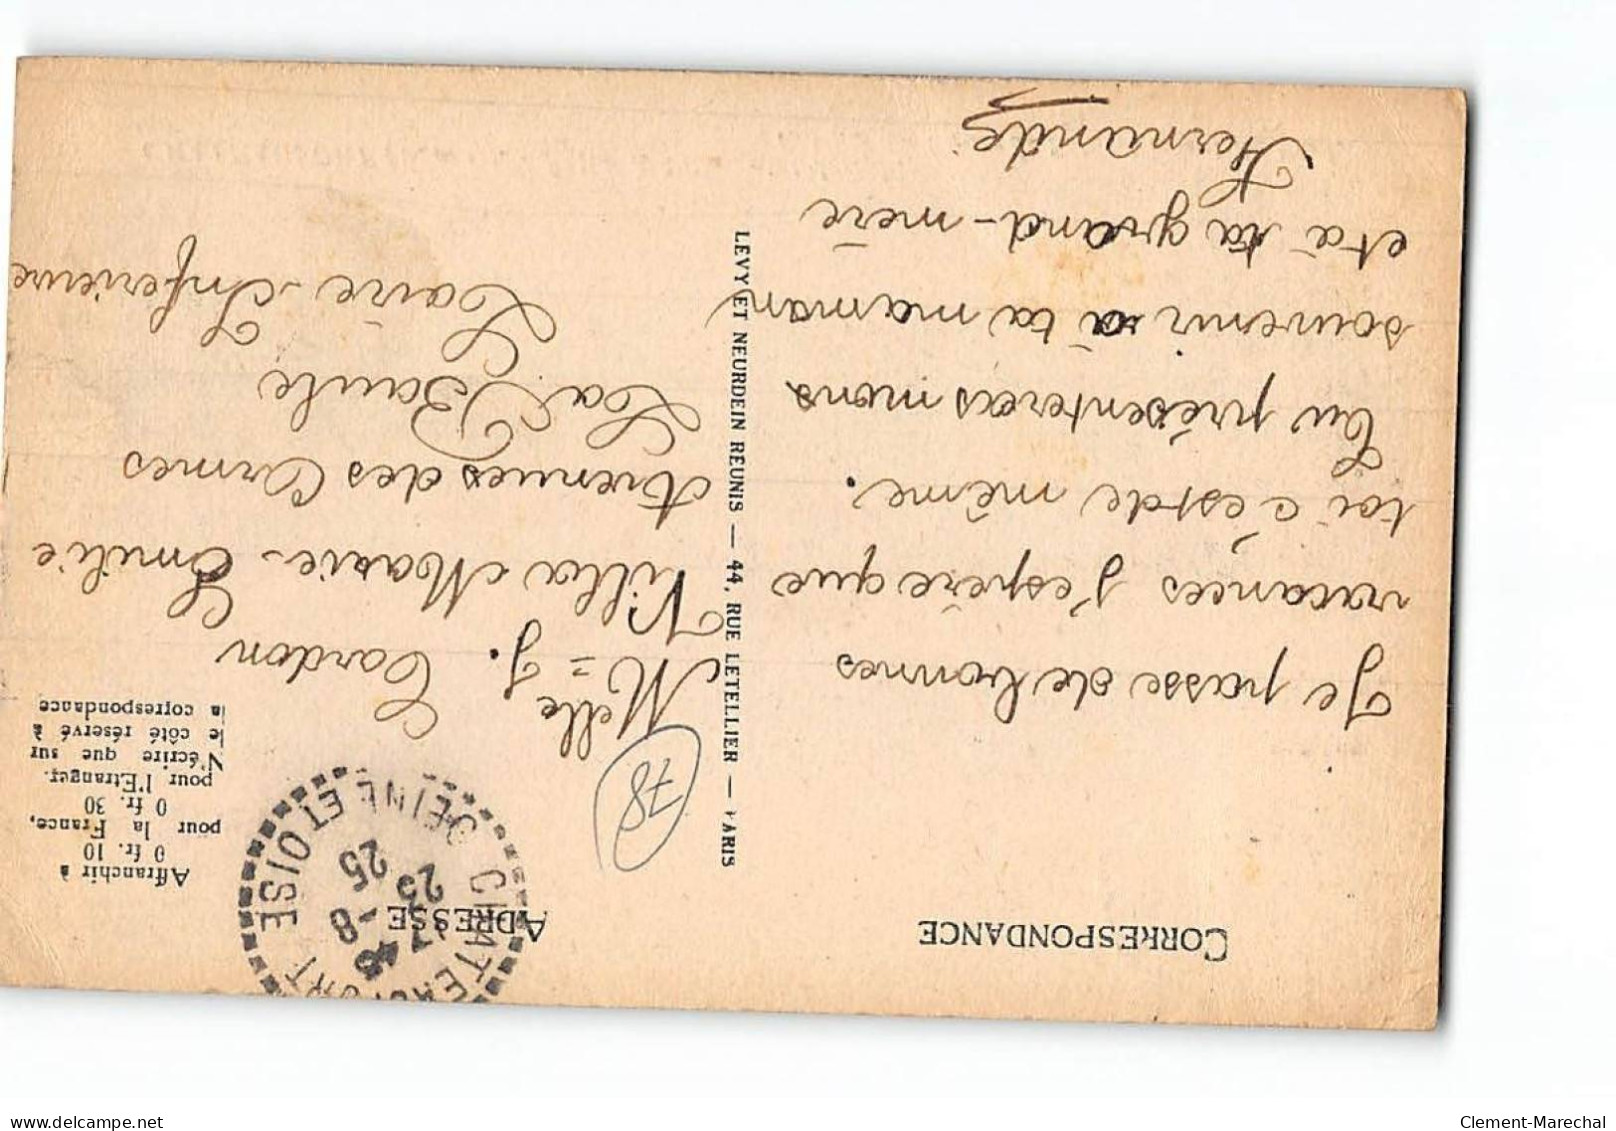 CORRESPONDANCE
Je passe de bonnes
vacances j'espère que
toi c'est de même.
Tu présenteras mons
souvenir à ta maman
et à ta grand-mère
Fernande
LEVY ET NEURDEIN REUNIS — 44, RUE LETELLIER — PARIS
ADRESSE
CHATEAUFORT
SEINE ET OISE
-8
25
Affranchir à
0 fr. 10
pour la France,
0 fr. 30
pour l'Etranger.
N'écrire que sur
le côté réservé à
la correspondance
78
Melle J. Cardon
Villa Marie-Emilie
Avenues des Ormes
La Baule
Loire-Inferieure
Clement-Marechal